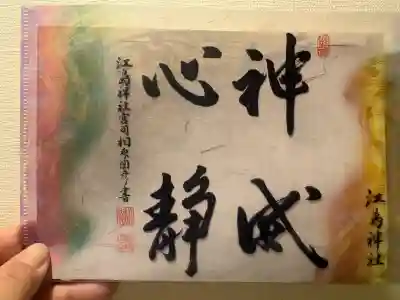 神威
心静
江島神社宮司相原圀彦書
江島神社